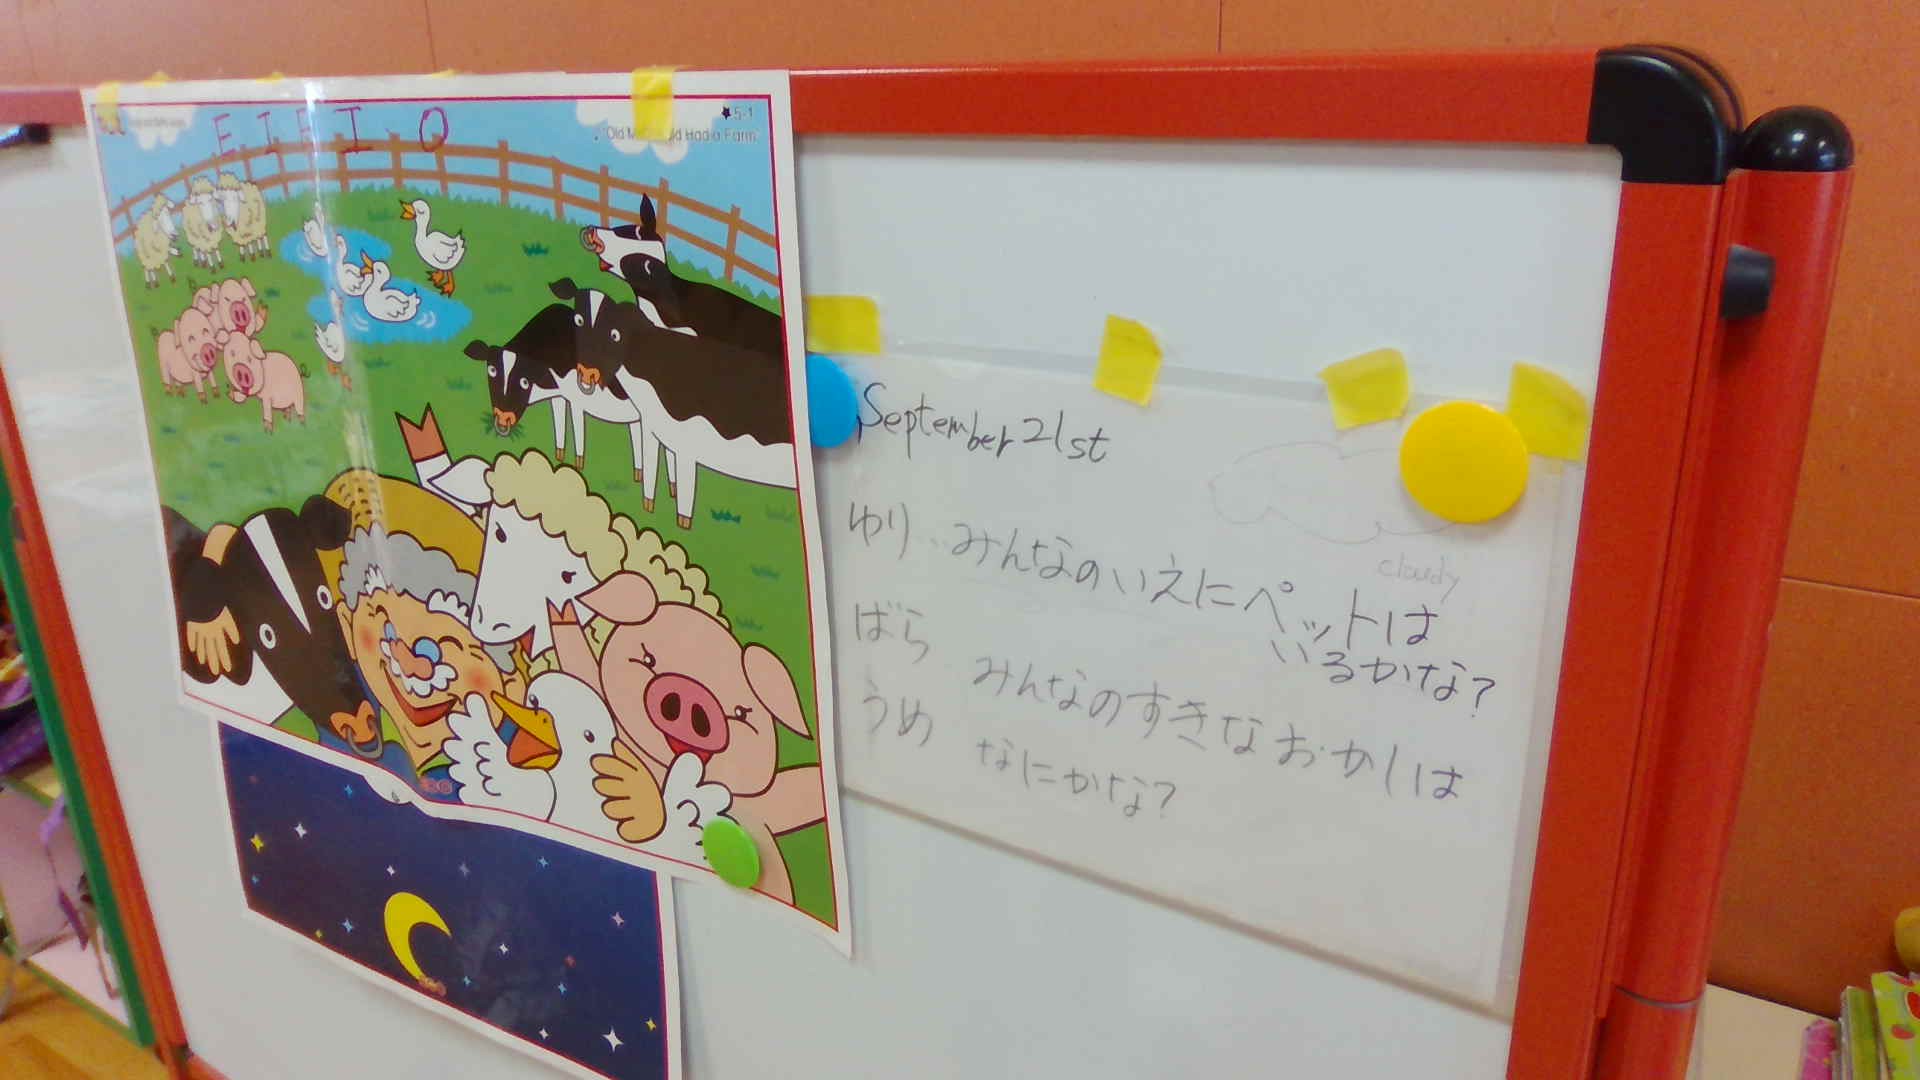 E I E I O
★5-1
"Old Had a Farm"
September 21st
cloudy
ゆり みんなのいえにペットは
いるかな?
ばら
うめ みんなのすきなおかしは
なにかな?